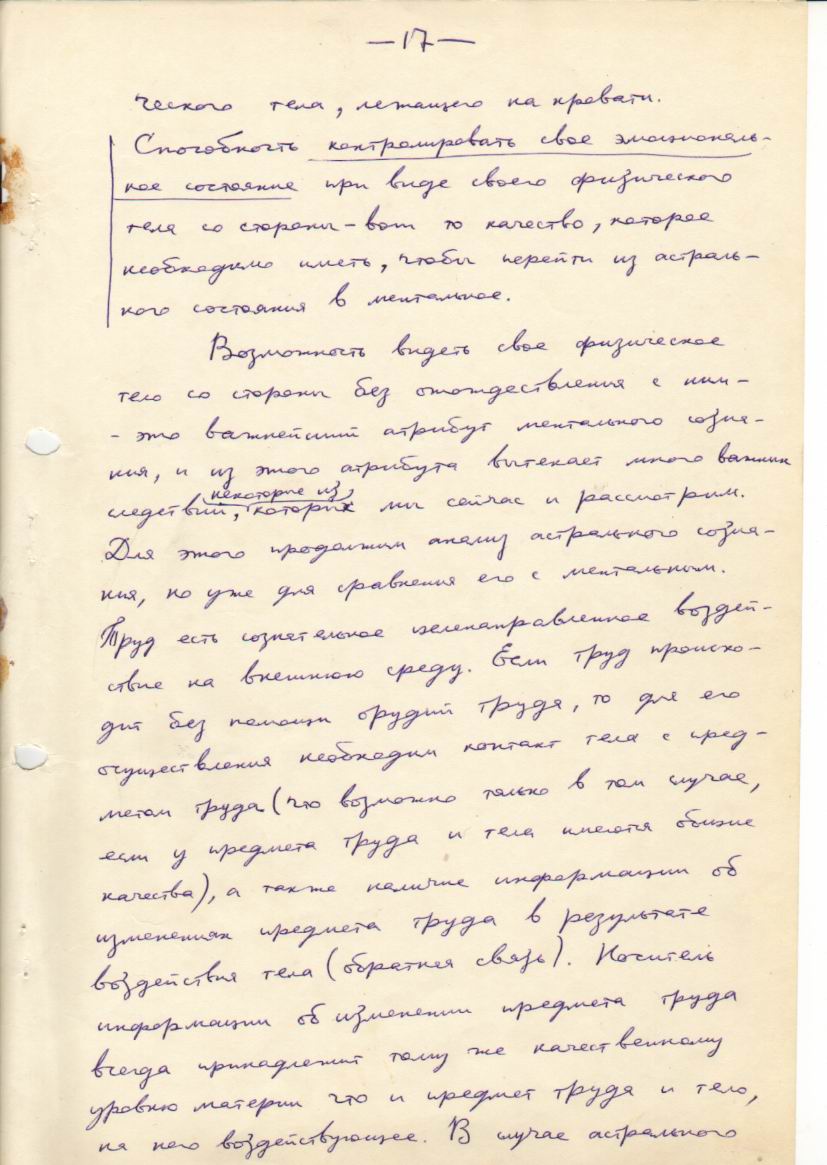 —17—
ческого тела, лежащего на кровати.
Способность контролировать свое эмоциональ-
ное состояние при виде своего физического
тела со стороны – вот то качество, которое
необходимо иметь, чтобы перейти из астраль-
ного состояния в ментальное.
Возможность видеть свое физическое
тело со стороны без отождествления с ним –
– это важнейший атрибут ментального созна-
ния, и из этого атрибута вытекает много важных
некоторые из
следствий, которых мы сейчас и рассмотрим.
Для этого продолжим анализ астрального созна-
ния, но уже для сравнения его с ментальным.
Труд есть сознательное целенаправленное воздей-
ствие на внешнюю среду. Если труд происхо-
дит без помощи орудий труда, то для его
осуществления необходим контакт тела с пред-
метом труда (что возможно только в том случае,
если у предмета труда и тела имеются общие
качества), а также наличие информации об
изменениях предмета труда в результате
воздействия тела (обратная связь). Носитель
информации об изменении предмета труда
всегда принадлежит тому же качественному
уровню материи что и предмет труда и тело,
на него воздействующее. В случае астрального